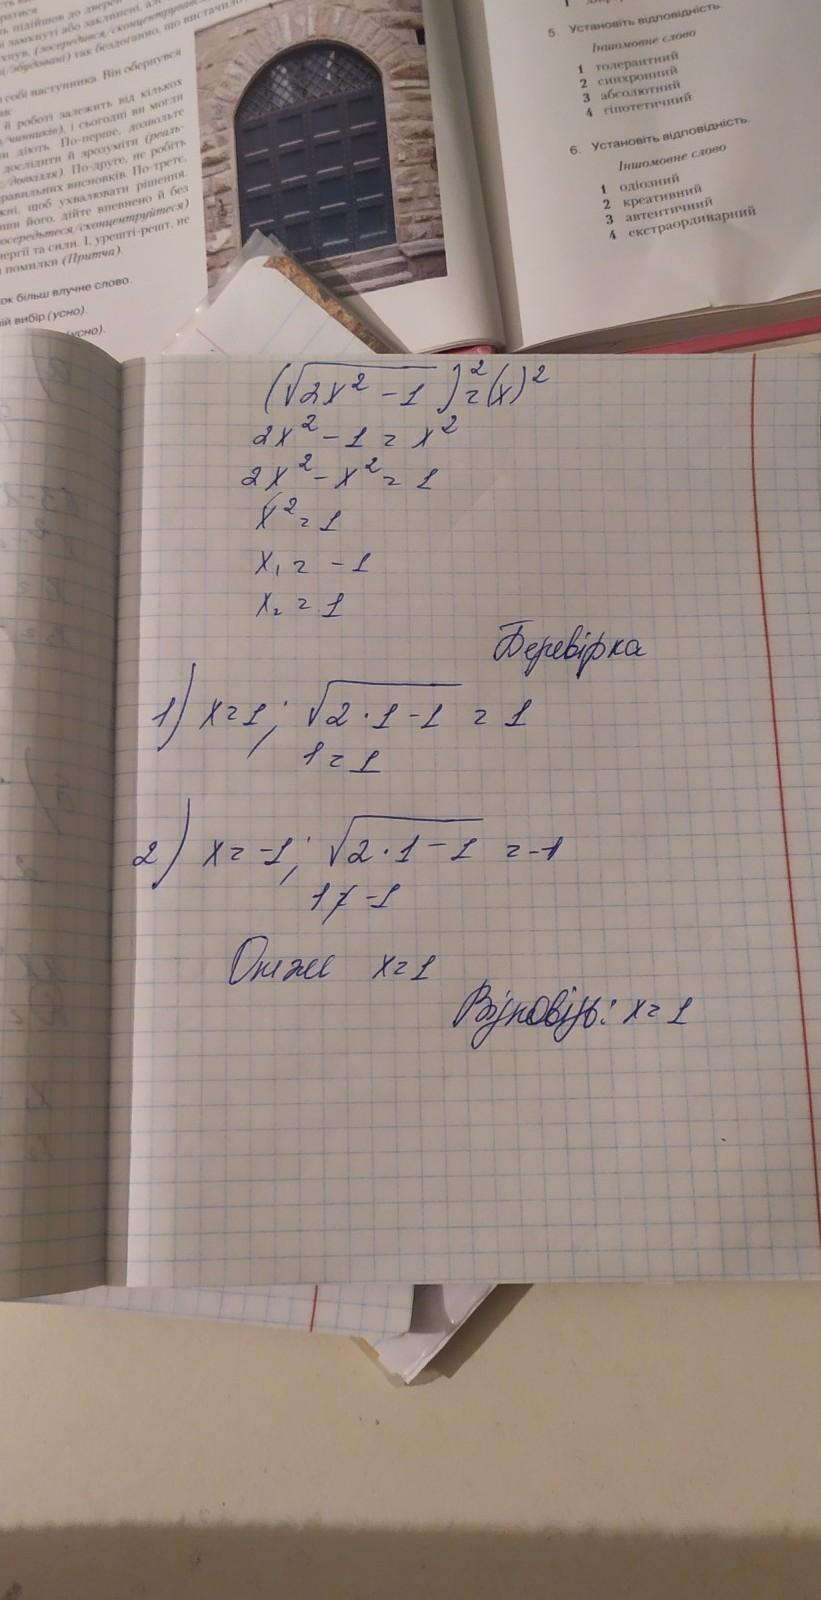 підійшов до дверей
замкнуті або заклинені, але
(зосередився/сконцентрувався
так бездоганно, що вистачило
собі наступника. Він обернувся
й роботі залежить від кількох
і сьогодні ви могли
діють. По-перше, дозвольте
дослідити й зрозуміти (реаль-
довкілля). По-друге, не робіть
правильних висновків. По-третє,
щоб ухвалювати рішення.
його, дійте впевнено й без
(зосередьтеся/сконцентруйтеся)
енергії та сили. І, урешті-решт, не
помилки (Притча).
більш влучне слово.
вибір (усно).
(усно).
5. Установіть відповідність.
Іншомовне слово
1 толерантний
2 синхронний
3 абсолютний
4 гіпотетичний
6. Установіть відповідність.
Іншомовне слово
1 одіозний
2 креативний
3 автентичний
4 екстраординарний
(√2x² - 1)² = (x)²
2x² - 1 = x²
2x² - x² = 1
x² = 1
x₁ = -1
x₂ = 1
Перевірка
1) x=1; √2·1-1 = 1
1=1
2) x=-1; √2·1-1 = -1
1≠-1
Отже x=1
Відповідь: x=1